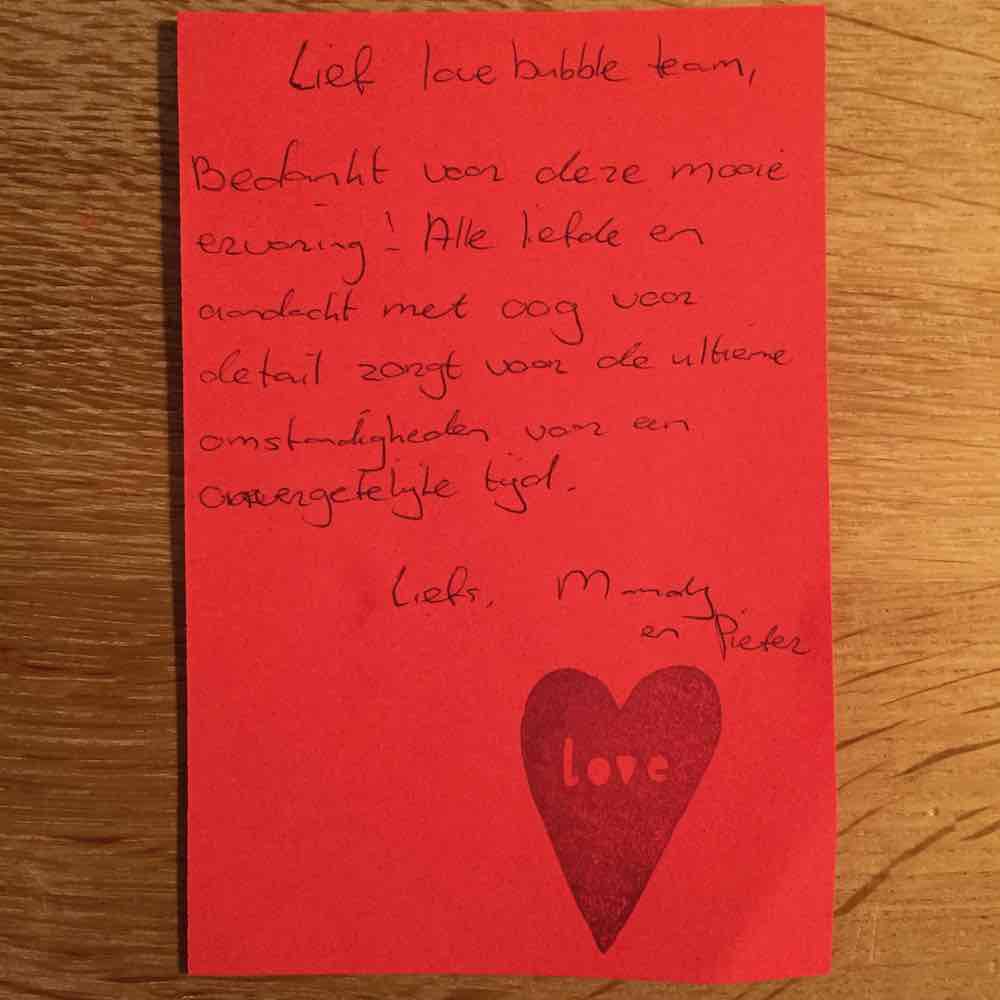 Lief love bubble team,
Bedankt voor deze mooie
ervaring! Alle liefde en
aandacht met oog voor
detail zorgt voor de ultieme
omstandigheden voor een
onvergetelijke tijd.
Liefs, Mandy
en Pieter
love